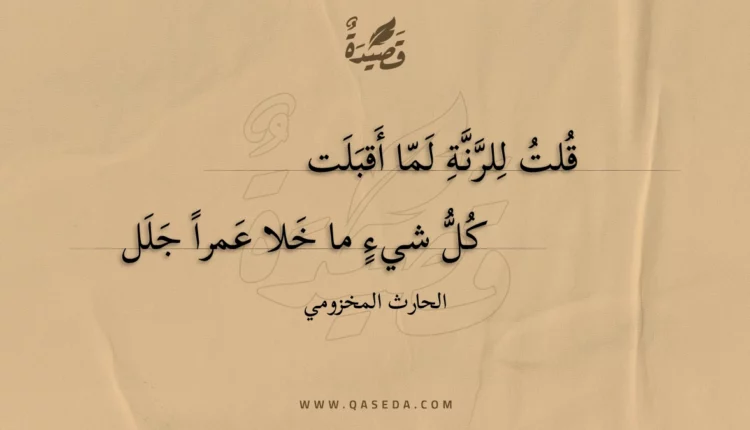 قَصِيْدَةٌ
قُلتُ لِلرَّنَّةِ لَمّا أَقبَلَت
كُلُّ شيءٍ ما خَلا عَمراً جَلَل
الحارث المخزومي
WWW.QASEDA.COM